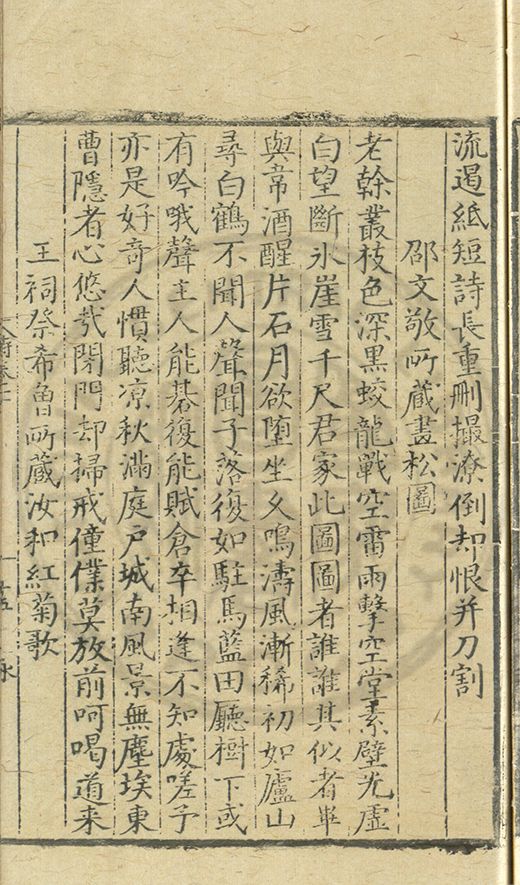 流遏紙短詩長重刪撮潦倒却恨并刀割
邵文敬所藏畫松圖
老幹叢枝色深黑蛟龍戰空雷雨擊空堂素壁光虛
白望斷氷崖雪千尺君家此圖圖者誰誰其似者畢
與韋酒醒片石月欲堕坐久鳴濤風漸稀初如廬山
尋白鶴不聞人聲聞子落復如駐馬藍田廳樹下或
有吟哦聲主人能碁復能賦倉卒相逢不知處嗟予
亦是好奇人慣聽凉秋滿庭戸城南風景無塵埃東
曹隱者心悠哉閉門却掃戒僮僕莫放前呵喝道来
王祠祭希魯所藏汝和紅菊歌
十五